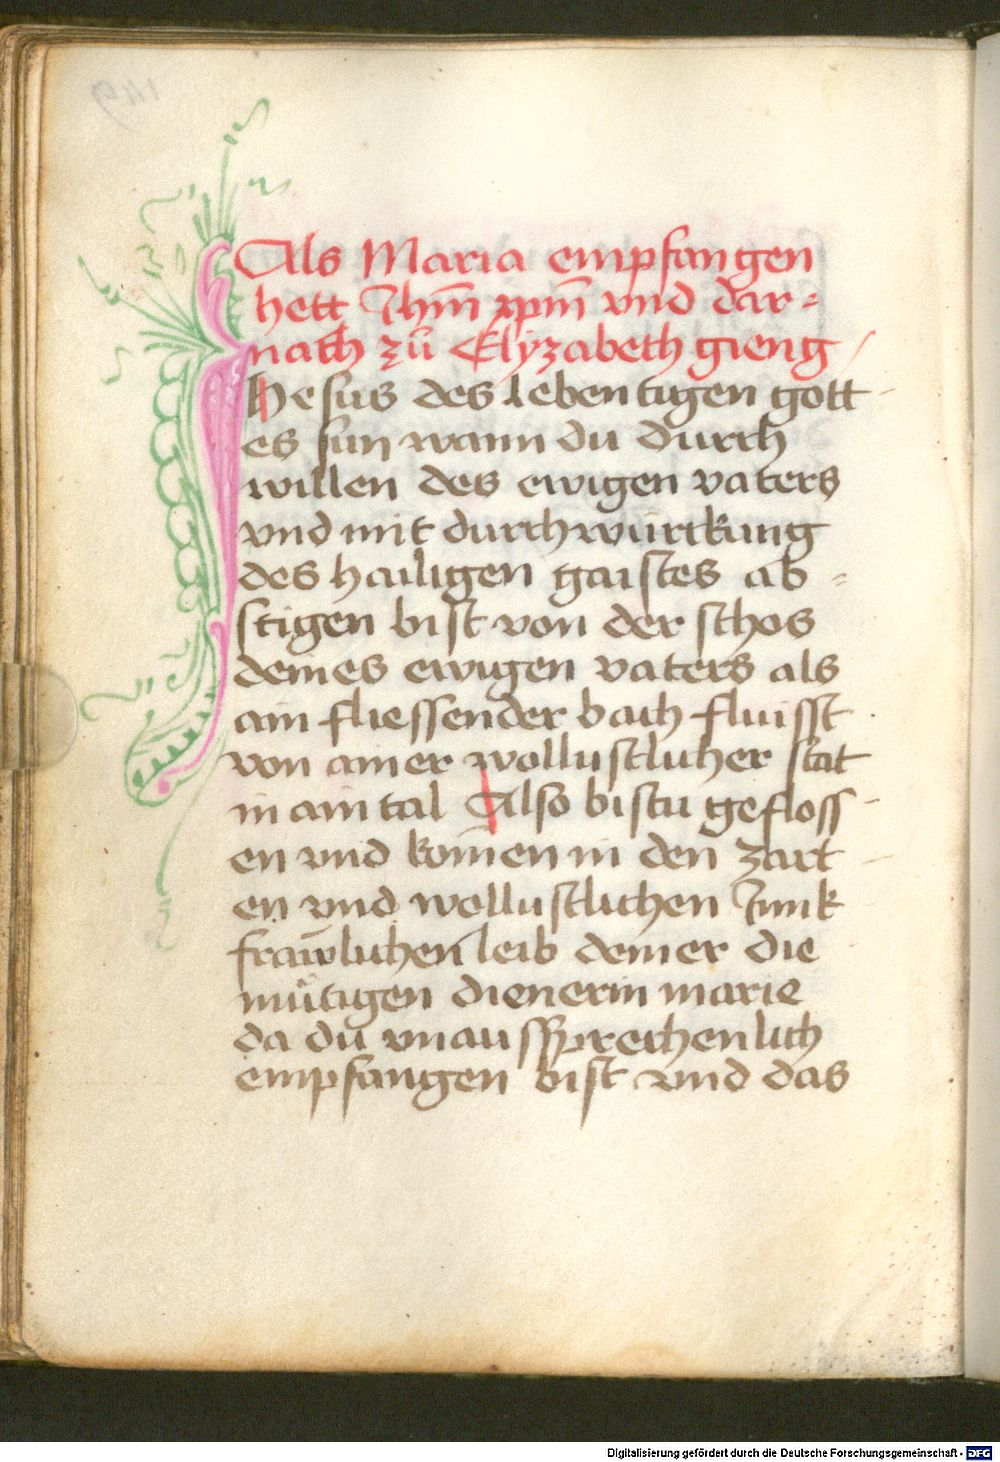 Als Maria empfangen
hett Jhm̄ xpm̄ vnd dar=
nach zů Elyzabeth gieng /
JHesus des lebentigen gott-
es sun wann du durch
willen des ewigen vaters
vnd mit durchwürckung
des hailigen gaistes ab=
stigen bist von der schos
deines ewigen vaters als
ain fliessender bach fluisst
von ainer wollustlicher stat
in ain tal Also bistu gefloss-
en vnd kom̄en in den zart-
en vnd wollustlichen Junk
frawlichen leib deiner die
mütigen dienerin marie
da du vnaussprechenlich
empfangen bist vnd das
149
Digitalisierung gefördert durch die Deutsche Forschungsgemeinschaft - DFG